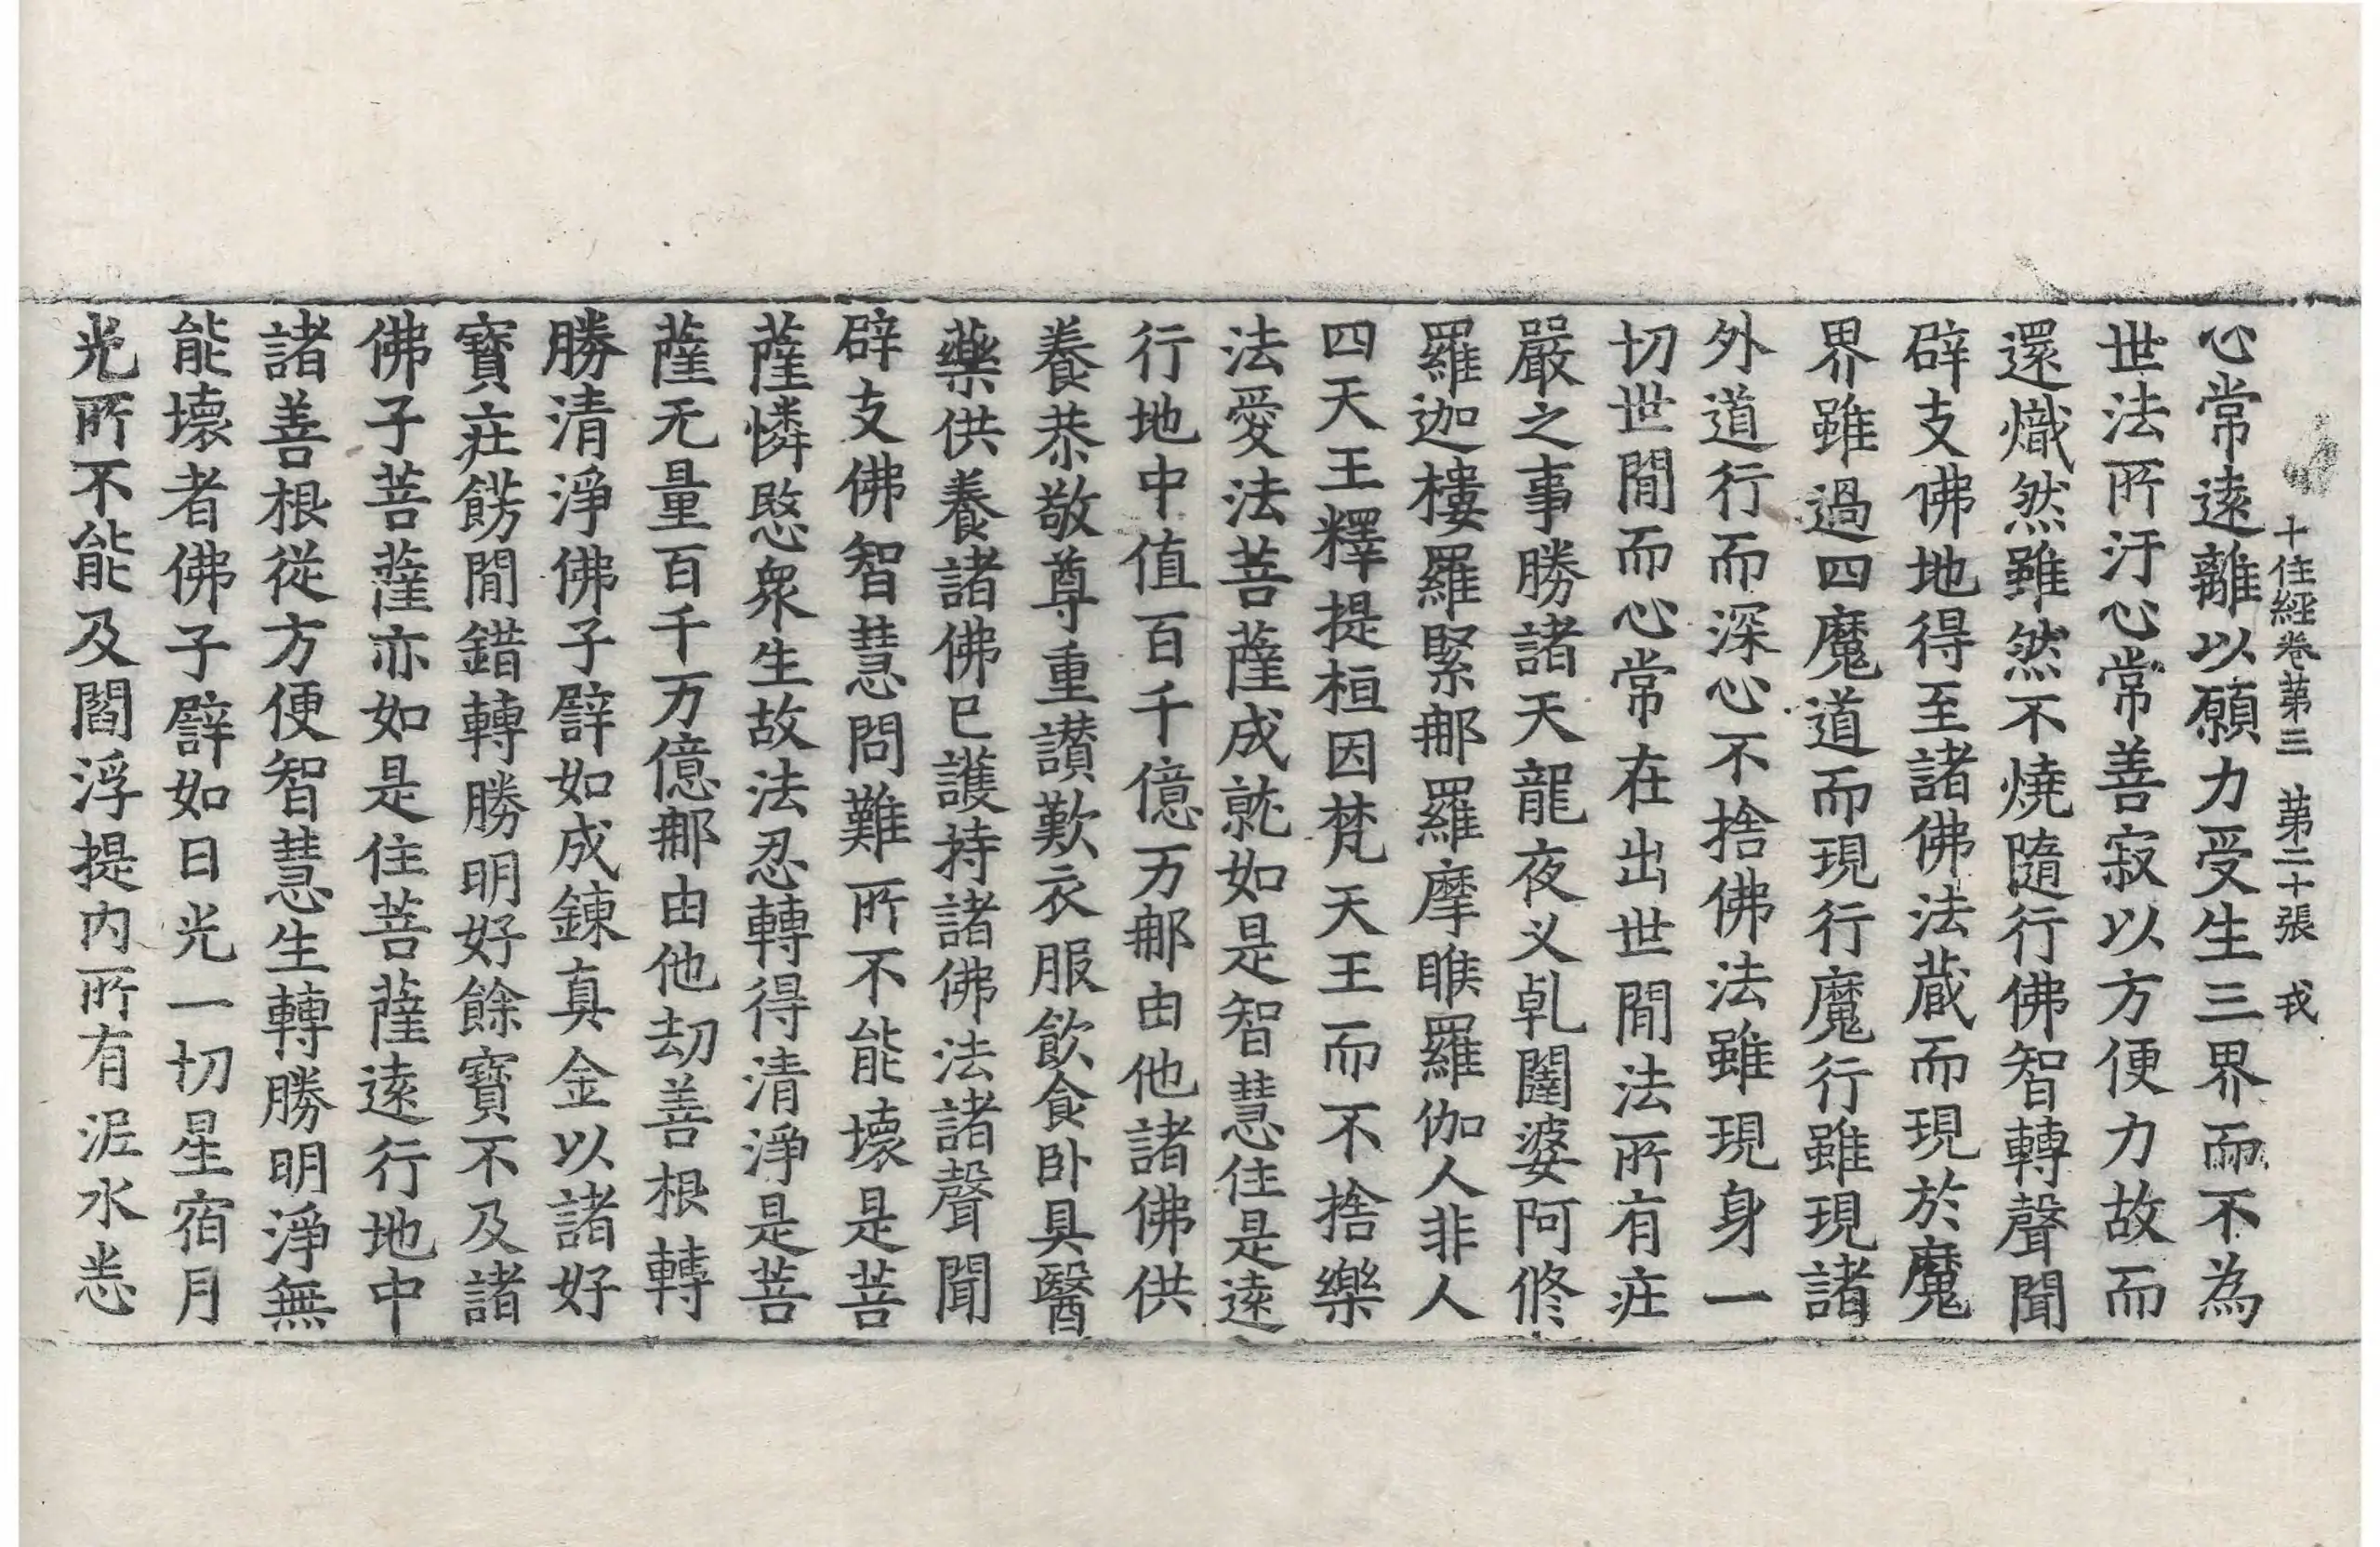 十住經卷第三 第二十張 戎
心常遠離以願力受生三界而不為
世法所汙心常善寂以方便力故而
還熾然雖然不燒隨行佛智轉聲聞
辟支佛地得至諸佛法蔵而現於魔
界雖過四魔道而現行魔行雖現諸
外道行而深心不捨佛法雖現身一
切世間而心常在出世間法所有庄
嚴之事勝諸天龍夜叉乹闥婆阿修
羅迦樓羅緊那羅摩睺羅伽人非人
四天王釋提桓因梵天王而不捨樂
法愛法菩薩成就如是智慧住是遠
行地中值百千億万那由他諸佛供
養恭敬尊重讃歎衣服飲食卧具醫
藥供養諸佛已護持諸佛法諸聲聞
辟支佛智慧問難所不能壞是菩
薩憐愍衆生故法忍轉得清淨是菩
薩无量百千万億那由他劫善根轉
勝清淨佛子譬如成鍊真金以諸好
寶庄餝間錯轉勝明好餘寶不及諸
佛子菩薩亦如是住菩薩遠行地中
諸善根從方便智慧生轉勝明淨無
能壞者佛子譬如日光一切星宿月
光所不能及閻浮提内所有泥水悉